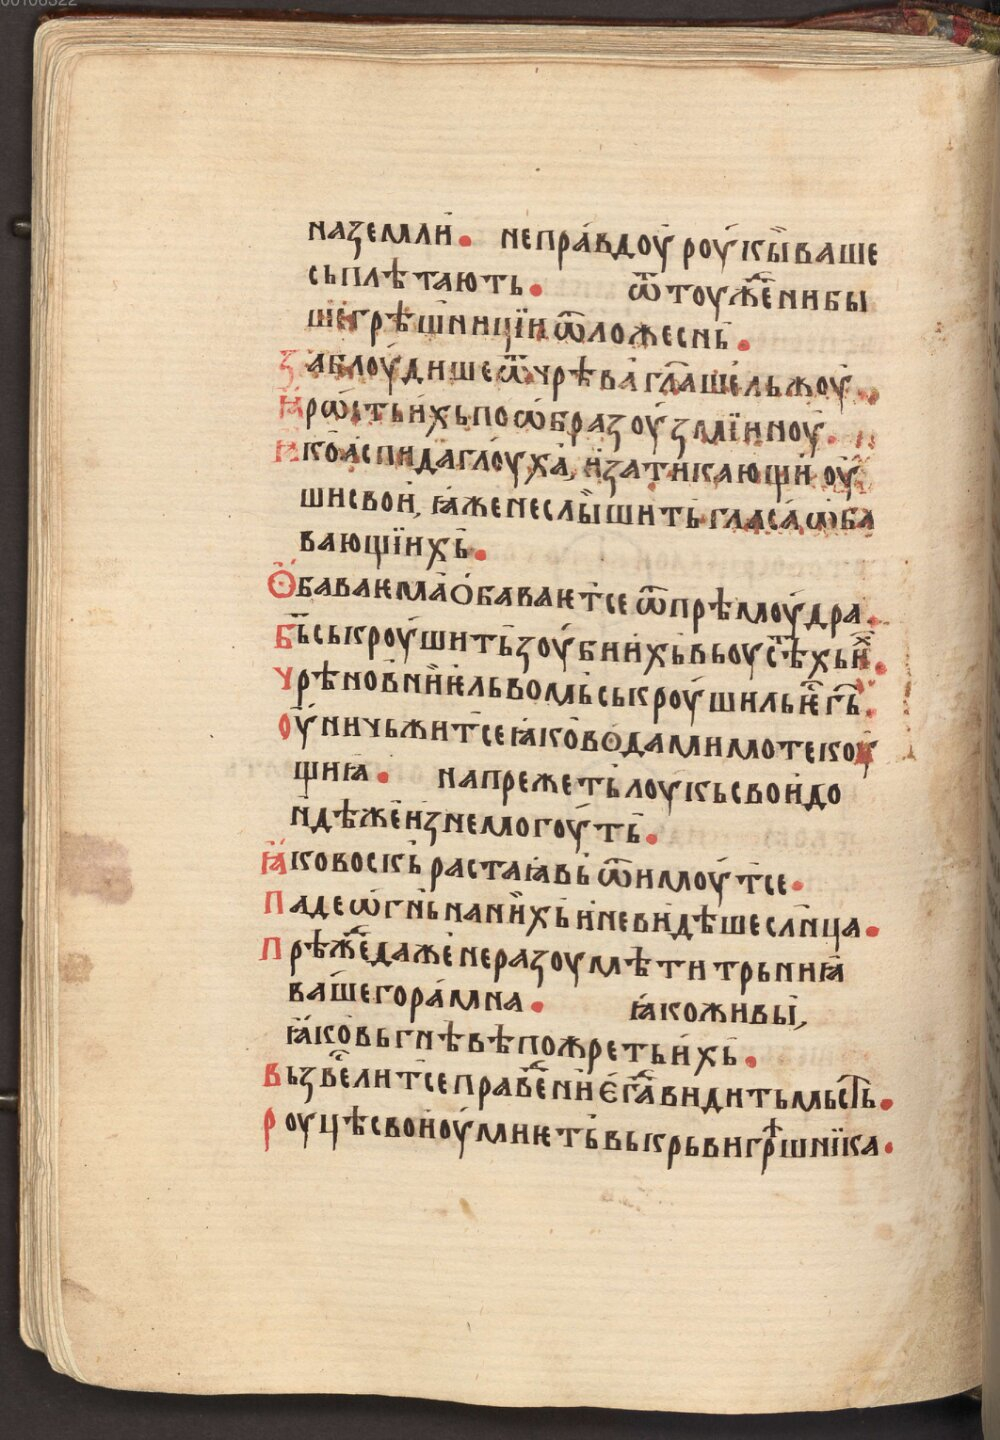 00108322
на земли҆. непра́вдоу роу́кы̀ ваше
сьплѣтають. ѿтоуж҃ени бы
ше грѣшницїи ѿ ложеснь.
Заблоу́дише ѿ чрѣва гл҃аше льжоу.
Ꙗ҆рѡ́сть и҆хь по ѡ҆бразоу́ змїиноу.
Ꙗ҆ко а҆спида глоуха, и҆ затикающи оу
ши свои, ꙗ҆же не слы̀шить гласа ѡ҆ба
вающїихь.
Ѻ҆баваѥма ѻ҆баваѥтсе ѿ прѣмоу́дра.
Бь̃ ськроушить зоу́би и҆хь вь оустѣхь и҆х.
Чрѣновни҆ꙗ львомь ськроу́шиль ѥс гь̃.
Оу҆ничьжитсе ꙗ҆ко во҆да мимотекоу
щиꙗ. напрежеть лоукь свои до
и҆дѣже и҆знемогоу́ть.
Ꙗ҆ко воскь растаꙗвь ѿимоу́тсе.
Паде ѡ҆гнь на ни҆хь и҆ не видѣше слн҃ца.
Прѣжде даже не разоумѣти трьниꙗ
ва́ше гора́мна. ꙗ҆ко живы,
ꙗ҆ко вь гнѣвѣ пожреть и҆хь.
Вьзвеселитсе праведни є҆гда видить мьсть.
Роуцѣ свои оу҆миѥть вь крьви грѣшнїка.